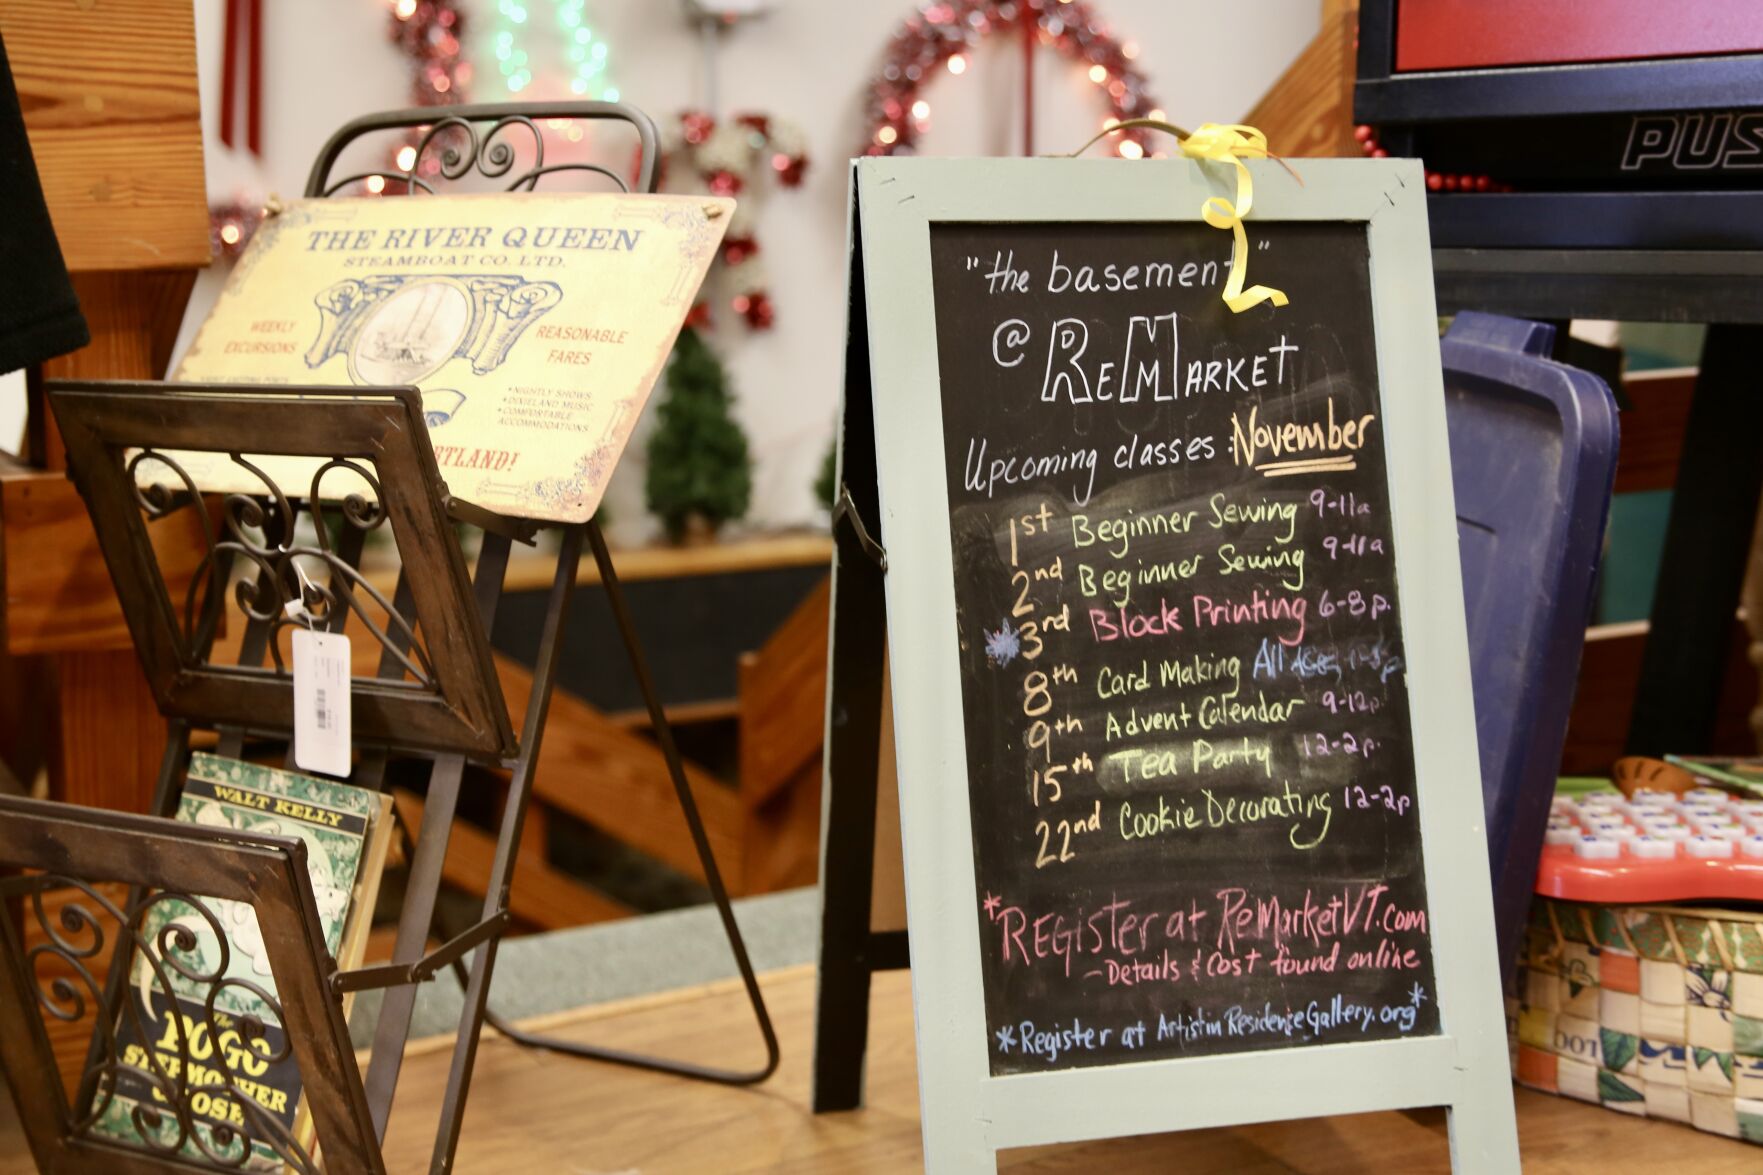 THE RIVER QUEEN
STEAMBOAT CO. LTD.
WEEKLY
EXCURSIONS
REASONABLE
FARES
•NIGHTLY SHOWS
•DIXIELAND MUSIC
•COMFORTABLE
ACCOMMODATIONS
RTLAND!
WALT KELLY
The
POGO
STEPMOTHER
GOOSE
"the basement"
@ REMARKET
Upcoming classes: November
1st Beginner Sewing 9-11a
2nd Beginner Sewing 9-11a
*3rd Block Printing 6-8p.
8th Card Making All Ages
9th Advent Calendar 9-12p.
15th Tea Party 12-2p.
22nd Cookie Decorating 12-2p
*REGISTER AT REMARKETVT.com
- Details & Cost found online
*Register at ArtistinResidenceGallery.org*
PUS